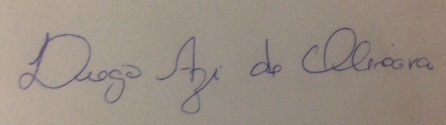 Diogo Azi de Oliveira